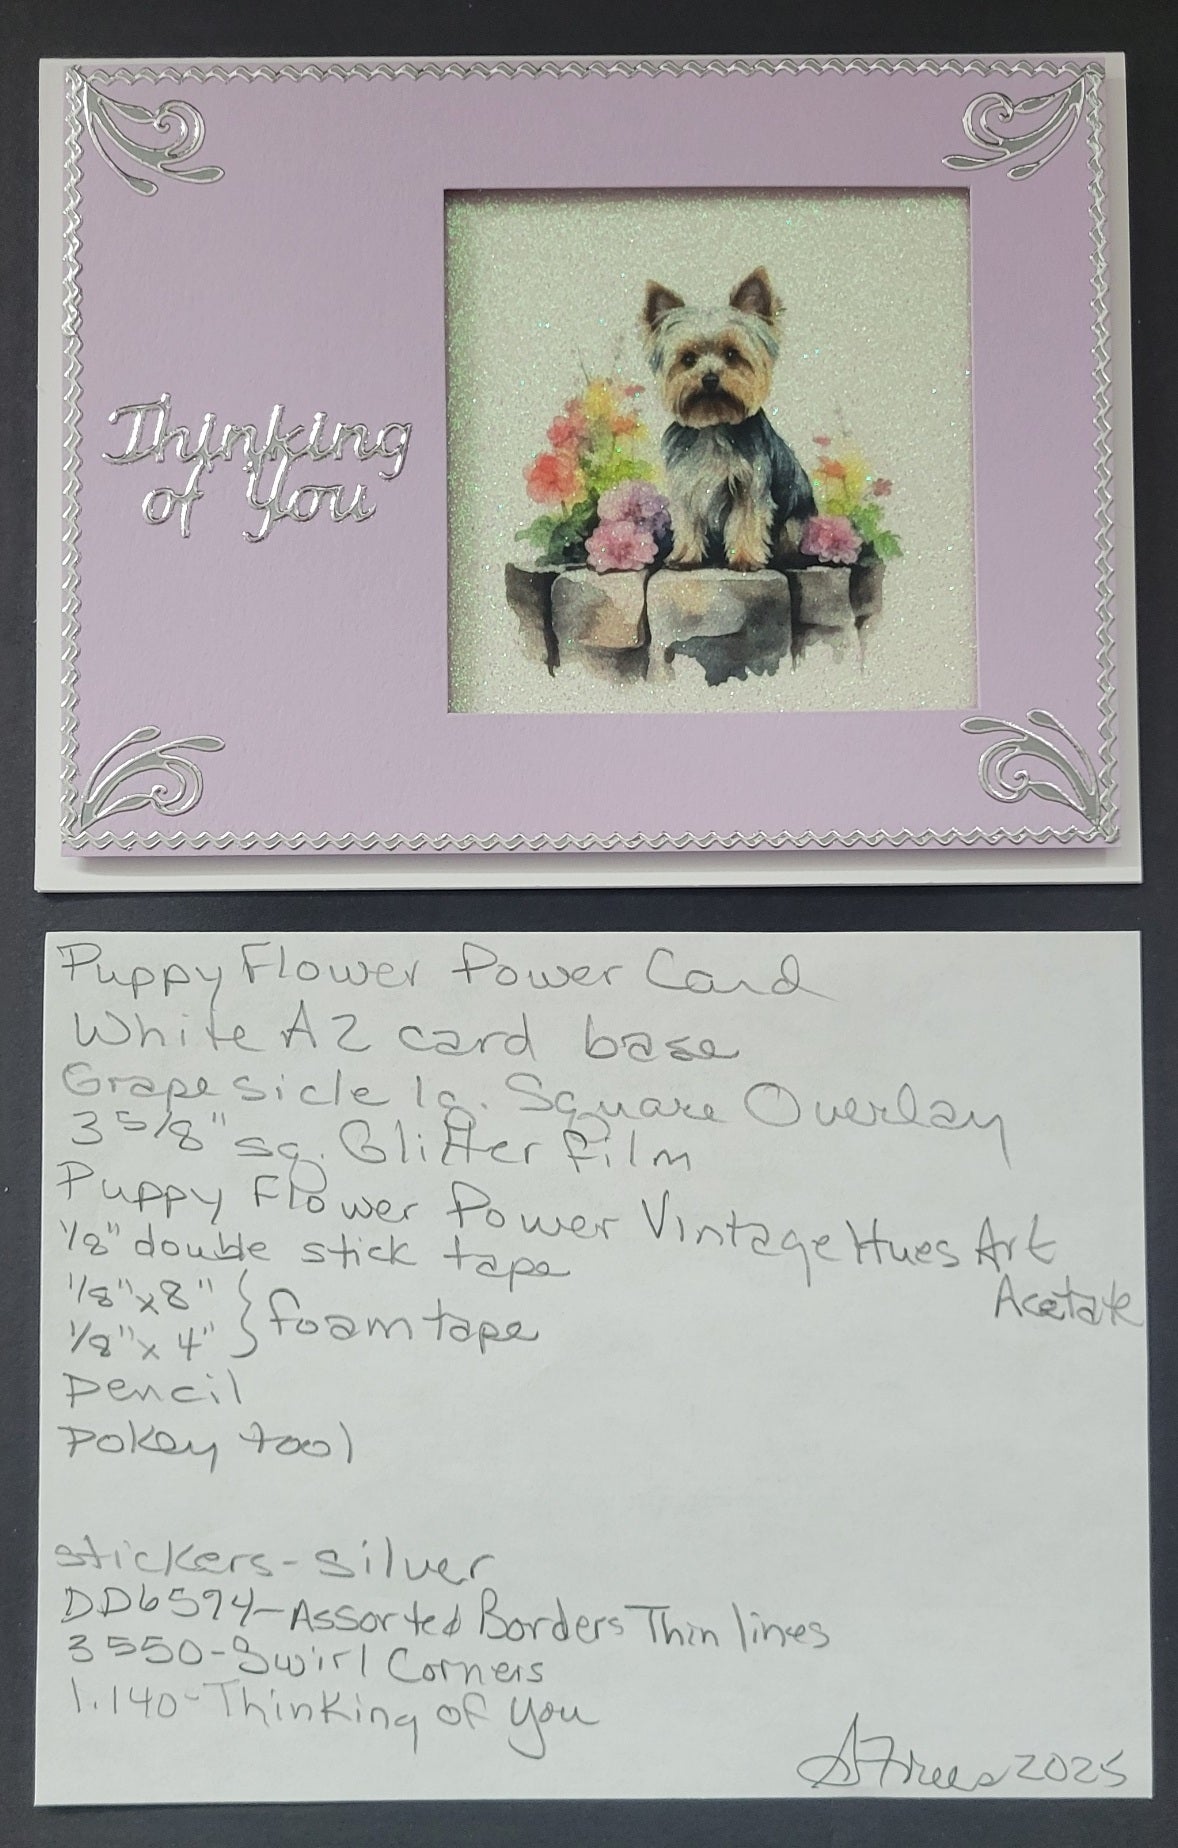 Thinking
of You
Puppy Flower Power Card
White A2 card base
Grapesicle lg. Square Overlay
3 5/8" sq. Glitter film
Puppy Flower Power Vintage Hues Art
Acetate
1/8" double stick tape
1/8" x 8"
1/8" x 4" } foam tape
pencil
pokey tool
stickers - silver
DD6594 - Assorted Borders Thin lines
3550 - Swirl Corners
1.140 - Thinking of You
2025